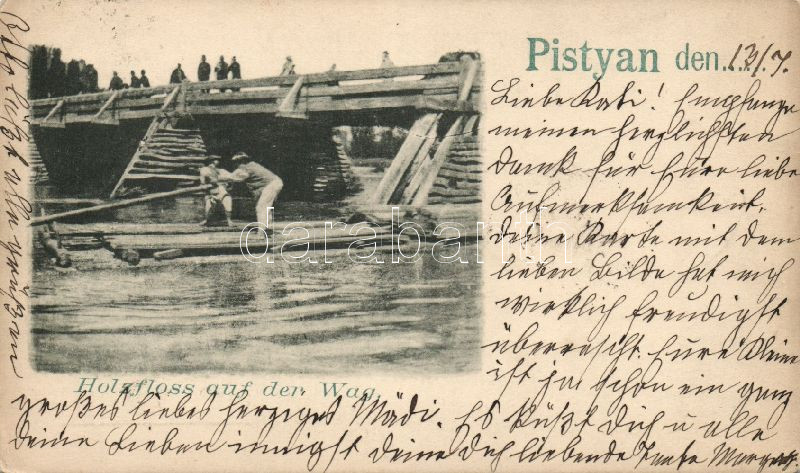 Pistyan den 13/7.
Liebe Kati! Empfange
meinen herzlichsten
Dank für Eure liebe
Aufmerksamkeit.
Deine Karte mit dem
lieben Bilde hat mich
wirklich freudigst
überrascht. Eure Kleine
ist ja schon ein ganz
großes liebes herziges Mädi. Es küßt Dich u alle
Deine Lieben innigst Deine Dich liebende Tante
Holzfloss auf der Wag.
darabanth